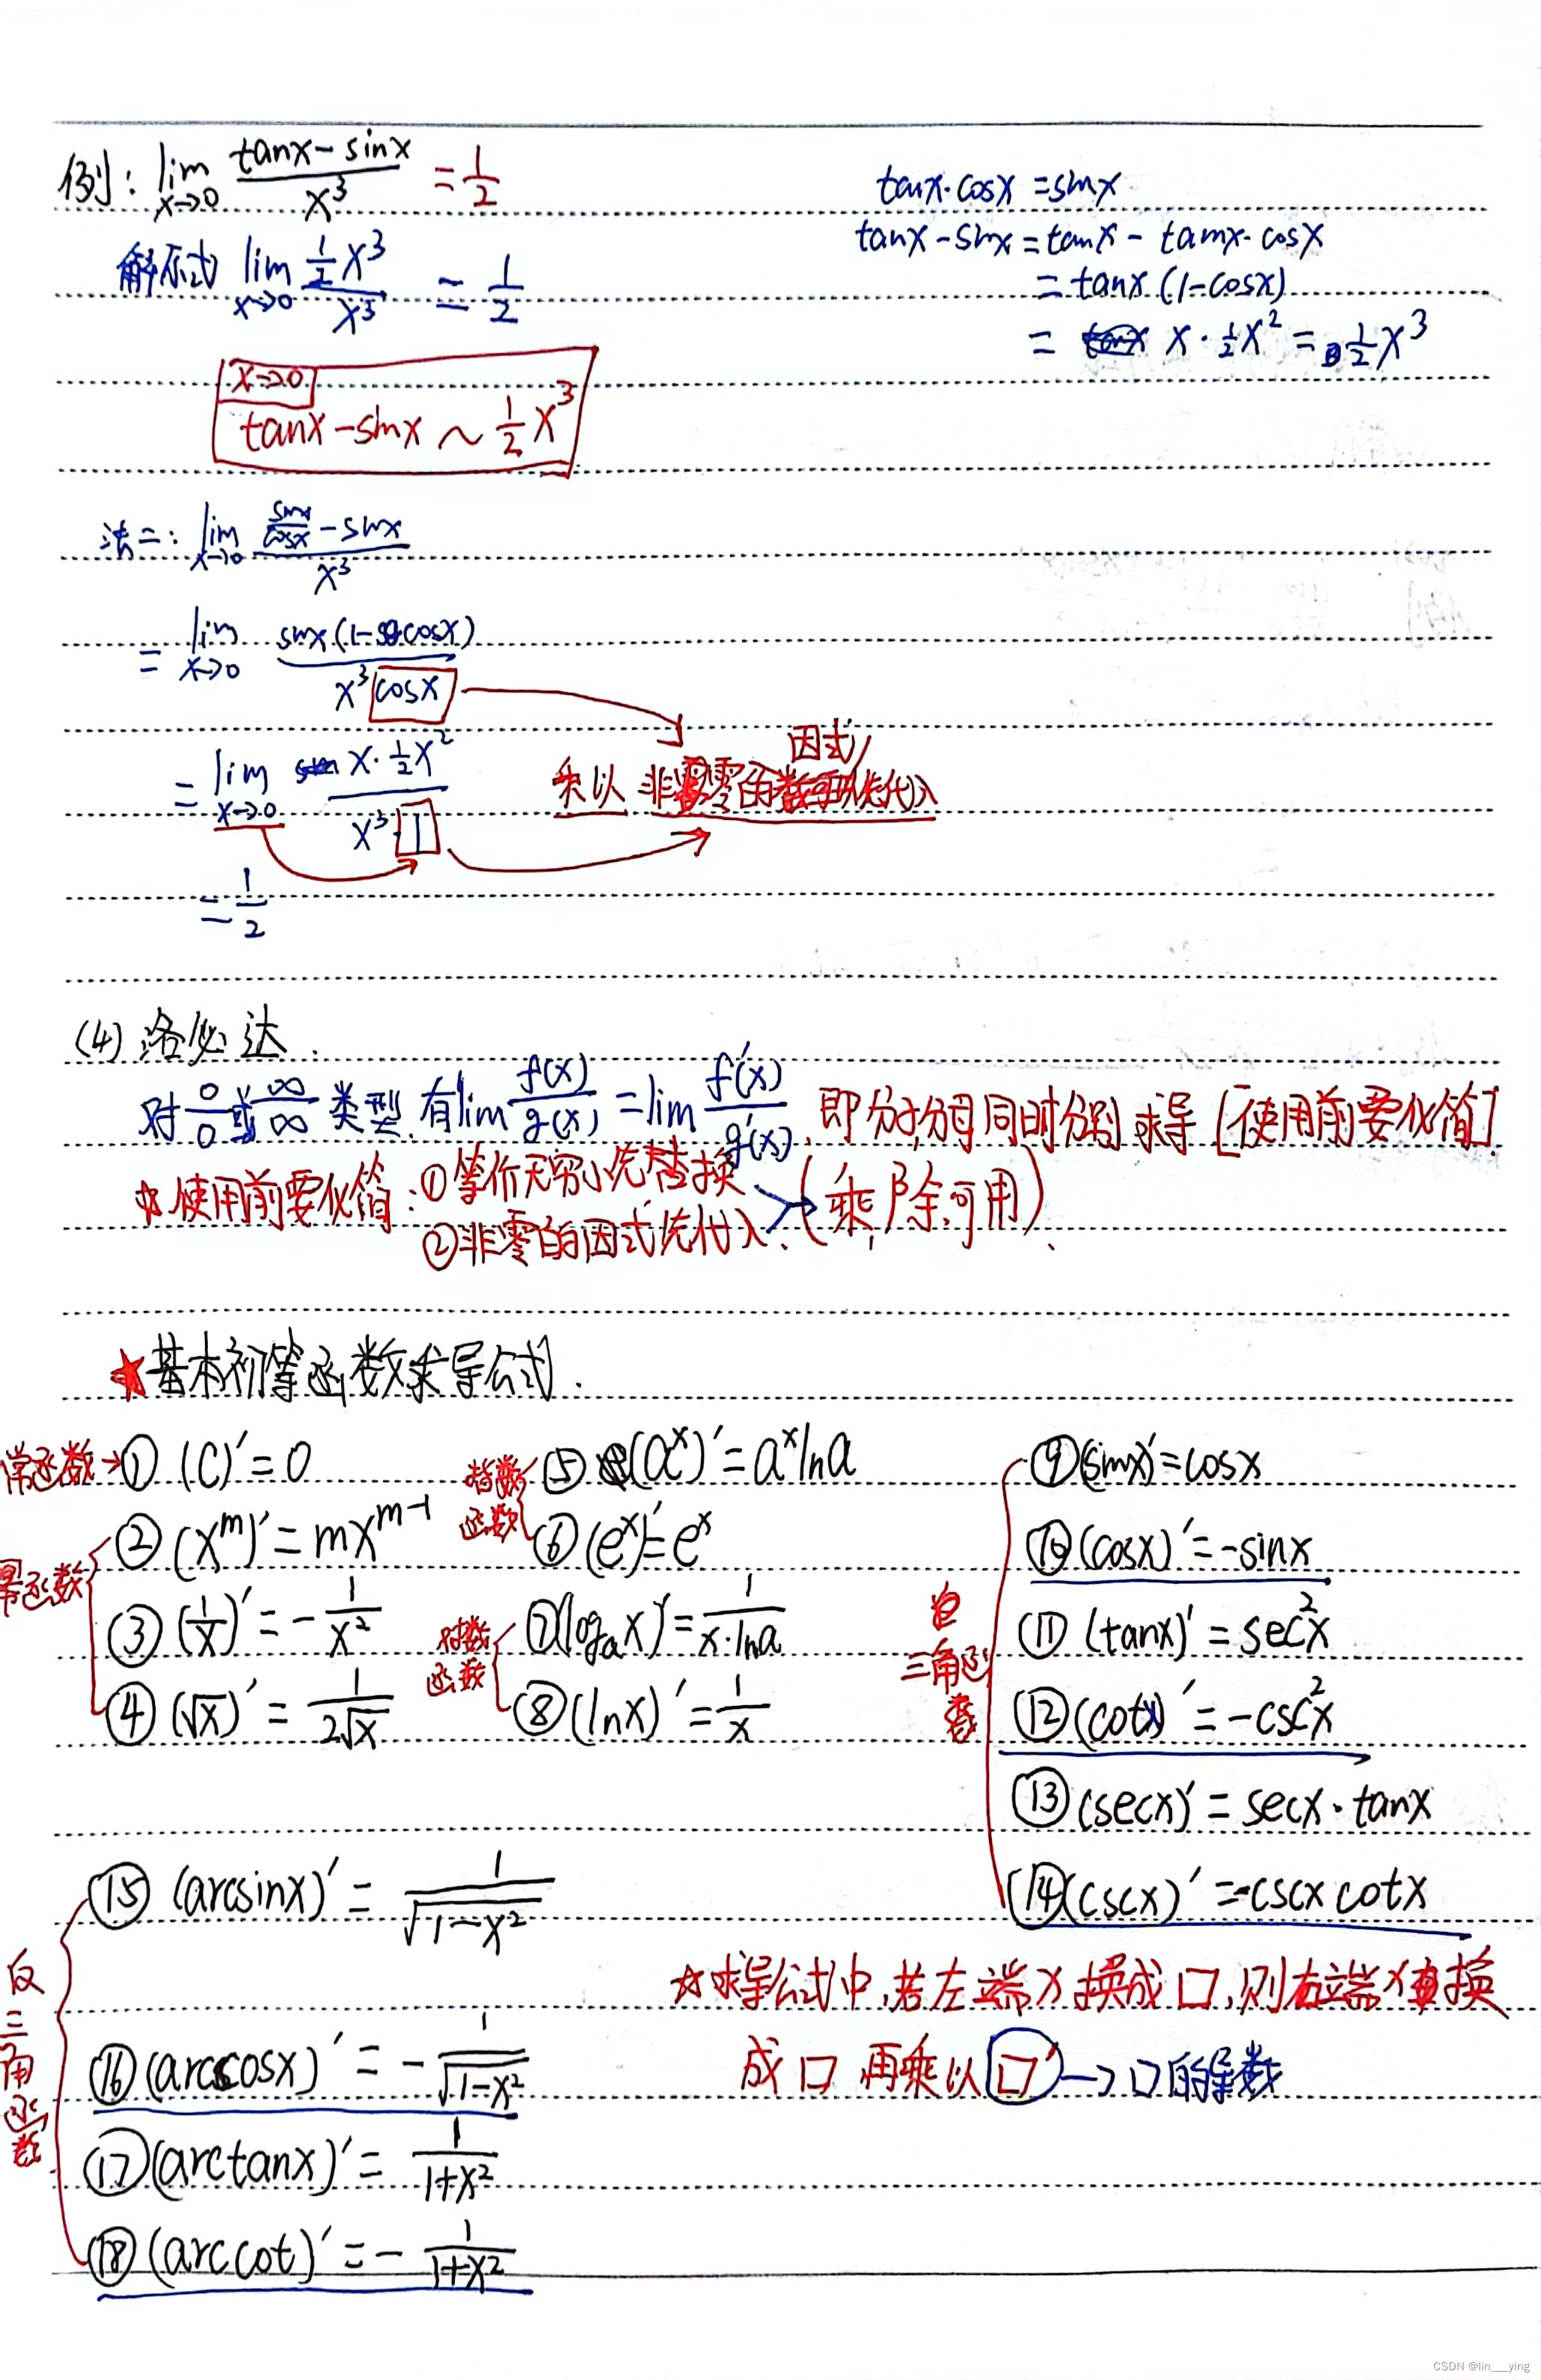 例: lim x→0 (tanx-sinx)/x³ = 1/2
tanx·cosx = sinx
解原式 lim x→0 (½x³)/x³ = 1/2
tanx-sinx = tanx - tanx·cosx
= tanx (1-cosx)
= x·½x² = ½x³
x→0
tanx-sinx ~ ½x³
法二: lim x→0 (sinx/cosx - sinx)/x³
= lim x→0 sinx(1-cosx)/(x³ cosx)
= lim x→0 (x·½x²)/(x³·1)
因式
乘以 非零的 先代入
= 1/2
(4) 洛必达.
对 0/0 或 ∞/∞ 类型, 有 lim f(x)/g(x) = lim f′(x)/g′(x), 即分子,分母同时分别求导 [使用前要化简]
☆使用前要化简: ①等价无穷小先替换
②非零的因式先代入. (乘,除可用).
★基本初等函数求导公式.
常函数→① (C)′ = 0
幂函数
② (x^m)′ = mx^(m-1)
③ (1/x)′ = -1/x²
④ (√x)′ = 1/(2√x)
指数函数
⑤ (a^x)′ = a^x lna
⑥ (e^x)′ = e^x
对数函数
⑦ (log_a x)′ = 1/(x·lna)
⑧ (lnx)′ = 1/x
三角函数
⑨ (sinx)′ = cosx
⑩ (cosx)′ = -sinx
⑪ (tanx)′ = sec²x
⑫ (cotx)′ = -csc²x
⑬ (secx)′ = secx·tanx
⑭ (cscx)′ = -cscx cotx
反三角函数
⑮ (arcsinx)′ = 1/√(1-x²)
⑯ (arccosx)′ = -1/√(1-x²)
⑰ (arctanx)′ = 1/(1+x²)
⑱ (arccot)′ = -1/(1+x²)
☆求导公式中,若左端x换成口,则右端x换
成口 再乘以 口′→口的导数
CSDN @lin___ying